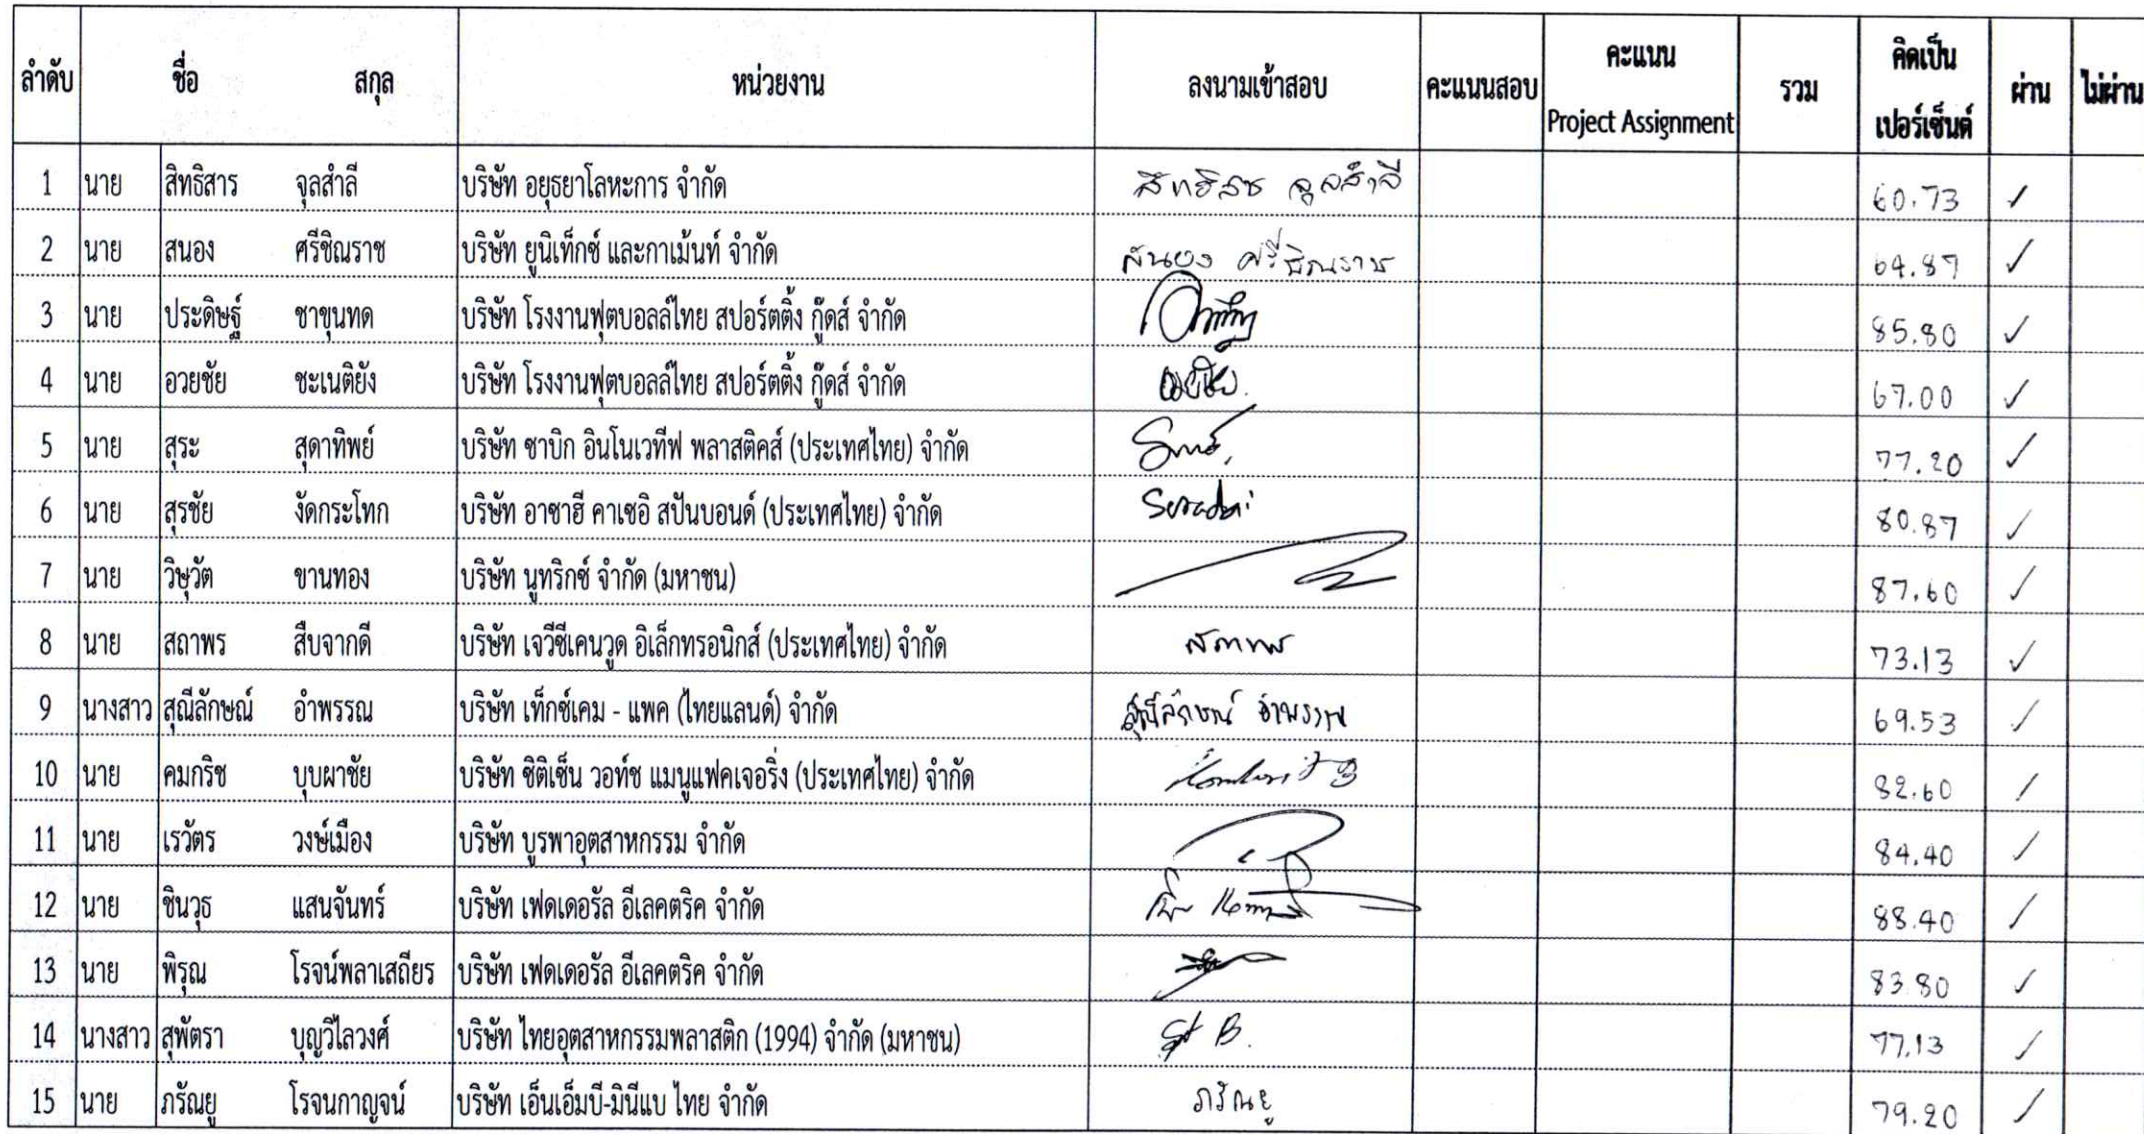 ลำดับ ชื่อ สกุล หน่วยงาน ลงนามเข้าสอบ คะแนนสอบ คะแนน Project Assignment รวม คิดเป็นเปอร์เซ็นต์ ผ่าน ไม่ผ่าน
1 นาย สิทธิสาร จุลสำลี บริษัท อยุธยาโลหะการ จำกัด จุลสำลี 60.73 ✓
2 นาย สนอง ศรีชิณราช บริษัท ยูนิเท็กซ์ และกาเม้นท์ จำกัด สนอง ศรีชิณราช 64.87 ✓
3 นาย ประดิษฐ์ ชาขุนทด บริษัท โรงงานฟุตบอลล์ไทย สปอร์ตติ้ง กู๊ดส์ จำกัด 85.80 ✓
4 นาย อวยชัย ชะเนติยัง บริษัท โรงงานฟุตบอลล์ไทย สปอร์ตติ้ง กู๊ดส์ จำกัด 67.00 ✓
5 นาย สุระ สุดาทิพย์ บริษัท ซาบิก อินโนเวทีฟ พลาสติคส์ (ประเทศไทย) จำกัด 77.20 ✓
6 นาย สุรชัย งัดกระโทก บริษัท อาซาฮี คาเซอิ สปันบอนด์ (ประเทศไทย) จำกัด 80.87 ✓
7 นาย วิษุวัต ขานทอง บริษัท นูทริกซ์ จำกัด (มหาชน) 87.60 ✓
8 นาย สถาพร สืบจากดี บริษัท เจวีซีเคนวูด อิเล็กทรอนิกส์ (ประเทศไทย) จำกัด สถาพร 73.13 ✓
9 นางสาว สุณีลักษณ์ อำพรรณ บริษัท เท็กซ์เคม - แพค (ไทยแลนด์) จำกัด สุณีลักษณ์ อำพรรณ 69.53 ✓
10 นาย คมกริช บุบผาชัย บริษัท ซิติเซ็น วอท์ช แมนูแฟคเจอริ่ง (ประเทศไทย) จำกัด 82.60 ✓
11 นาย เรวัตร วงษ์เมือง บริษัท บูรพาอุตสาหกรรม จำกัด 84.40 ✓
12 นาย ชินวุธ แสนจันทร์ บริษัท เฟดเดอรัล อีเลคตริค จำกัด 88.40 ✓
13 นาย พิรุณ โรจน์พลาเสถียร บริษัท เฟดเดอรัล อีเลคตริค จำกัด 83.80 ✓
14 นางสาว สุพัตรา บุญวิไลวงศ์ บริษัท ไทยอุตสาหกรรมพลาสติก (1994) จำกัด (มหาชน) 77.13 ✓
15 นาย ภรัณยู โรจนกาญจน์ บริษัท เอ็นเอ็มบี-มินีแบ ไทย จำกัด ภรัณยู 79.20 ✓